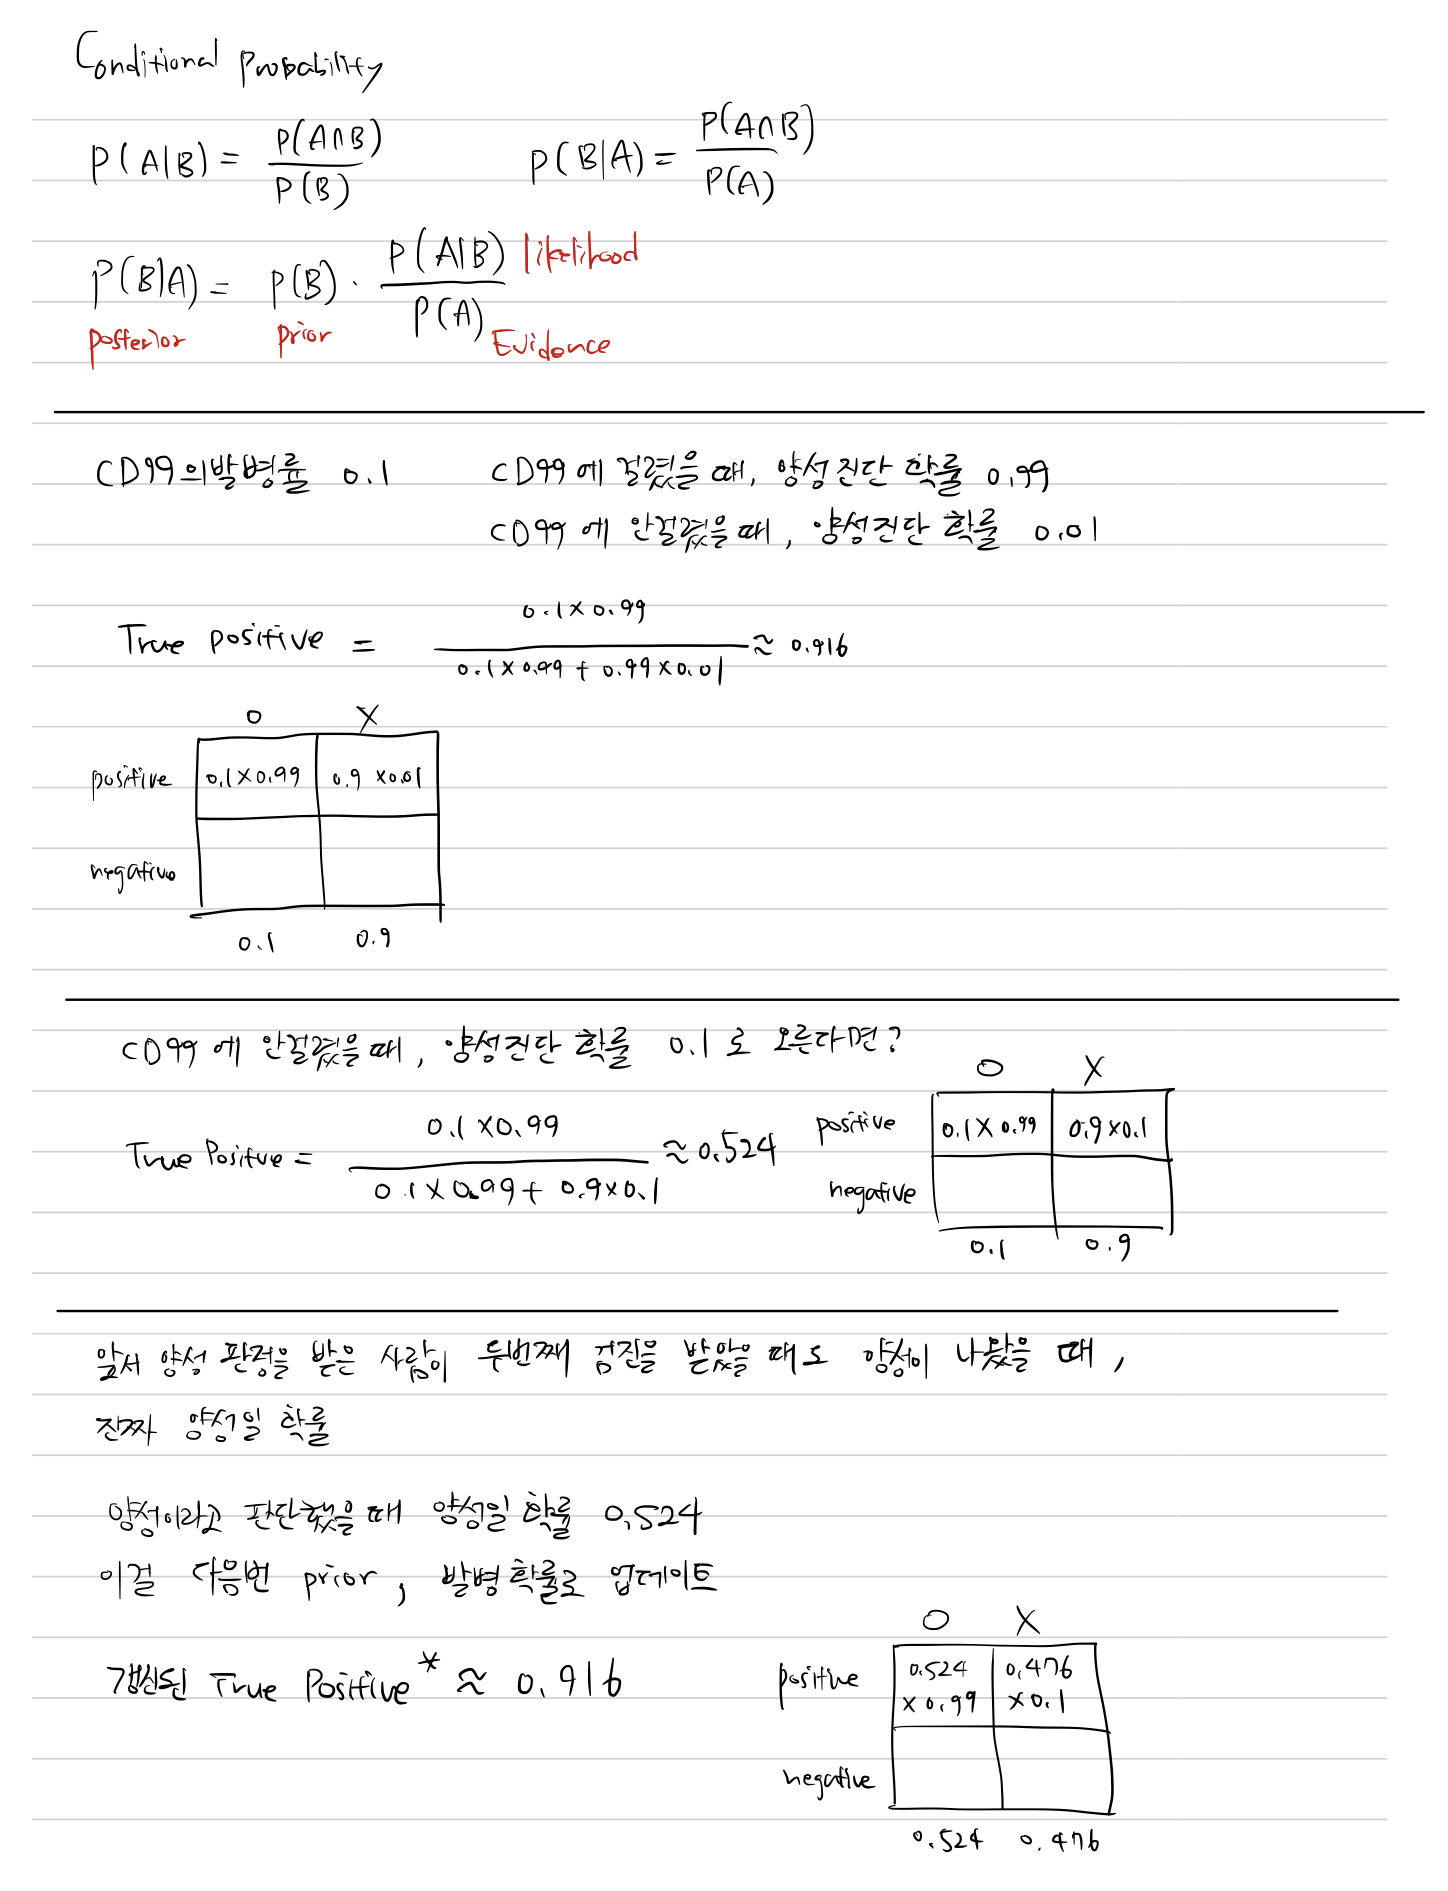 Conditional Probability
P(A|B) = P(A∩B) / P(B)    P(B|A) = P(A∩B) / P(A)
P(B|A) = P(B) · P(A|B) / P(A)
posterior prior likelihood Evidence
CD99의 발병률 0.1    CD99에 걸렸을 때, 양성진단 확률 0.99
CD99에 안걸렸을 때, 양성진단 확률 0.01
True positive = 0.1×0.99 / 0.1×0.99 + 0.99×0.01 ≈ 0.916
O X
positive 0.1×0.99 0.9×0.01
negative
0.1 0.9
CD99에 안걸렸을 때, 양성진단 확률 0.1로 오른다면?
True Positive = 0.1×0.99 / 0.1×0.99 + 0.9×0.1 ≈ 0.524
O X
positive 0.1×0.99 0.9×0.1
negative
0.1 0.9
앞서 양성 판정을 받은 사람이 두번째 검진을 받았을 때도 양성이 나왔을 때,
진짜 양성일 확률
양성이라고 판단했을 때 양성일 확률 0.524
이걸 다음번 prior, 발병확률로 업데이트
갱신된 True Positive* ≈ 0.916
O X
positive 0.524 ×0.99 0.476 ×0.1
negative
0.524 0.476